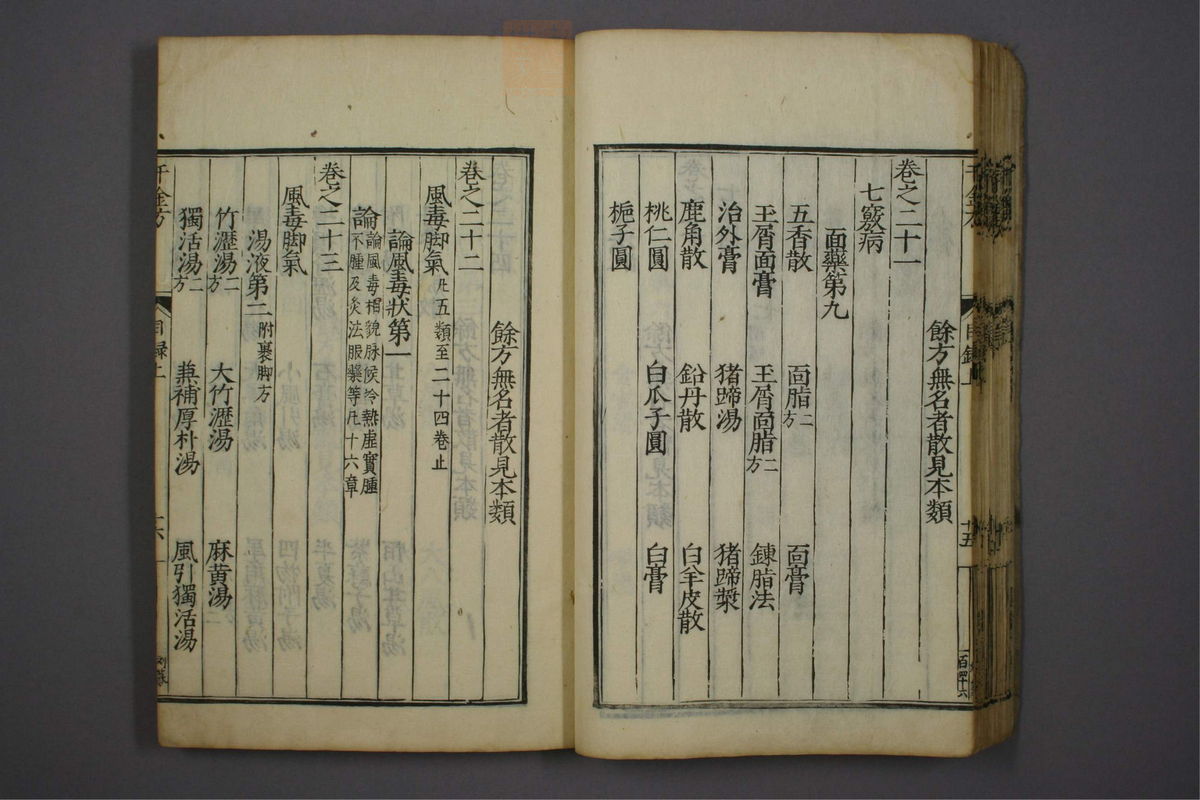 餘方無名者散見本類
卷之二十一
七竅病
面藥第九
五香散 面脂二方 面膏
玉屑面膏 玉屑面脂二方 鍊脂法
治外膏 猪蹄湯 猪蹄漿
鹿角散 鉛丹散 白羊皮散
桃仁圓 白瓜子圓 白膏
梔子圓
千金方 目錄上 十五
餘方無名者散見本類
卷之二十二
風毒脚氣凡五類至二十四卷止
論風毒狀第一
論論風毒相貌脉候冷熱虛實腫
不腫及灸法服藥等凡十六章
卷之二十三
風毒脚氣
湯液第二附裹脚方
竹瀝湯二方 大竹瀝湯 麻黃湯二
獨活湯二方 兼補厚朴湯 風引獨活湯
千金方 目錄上 十六